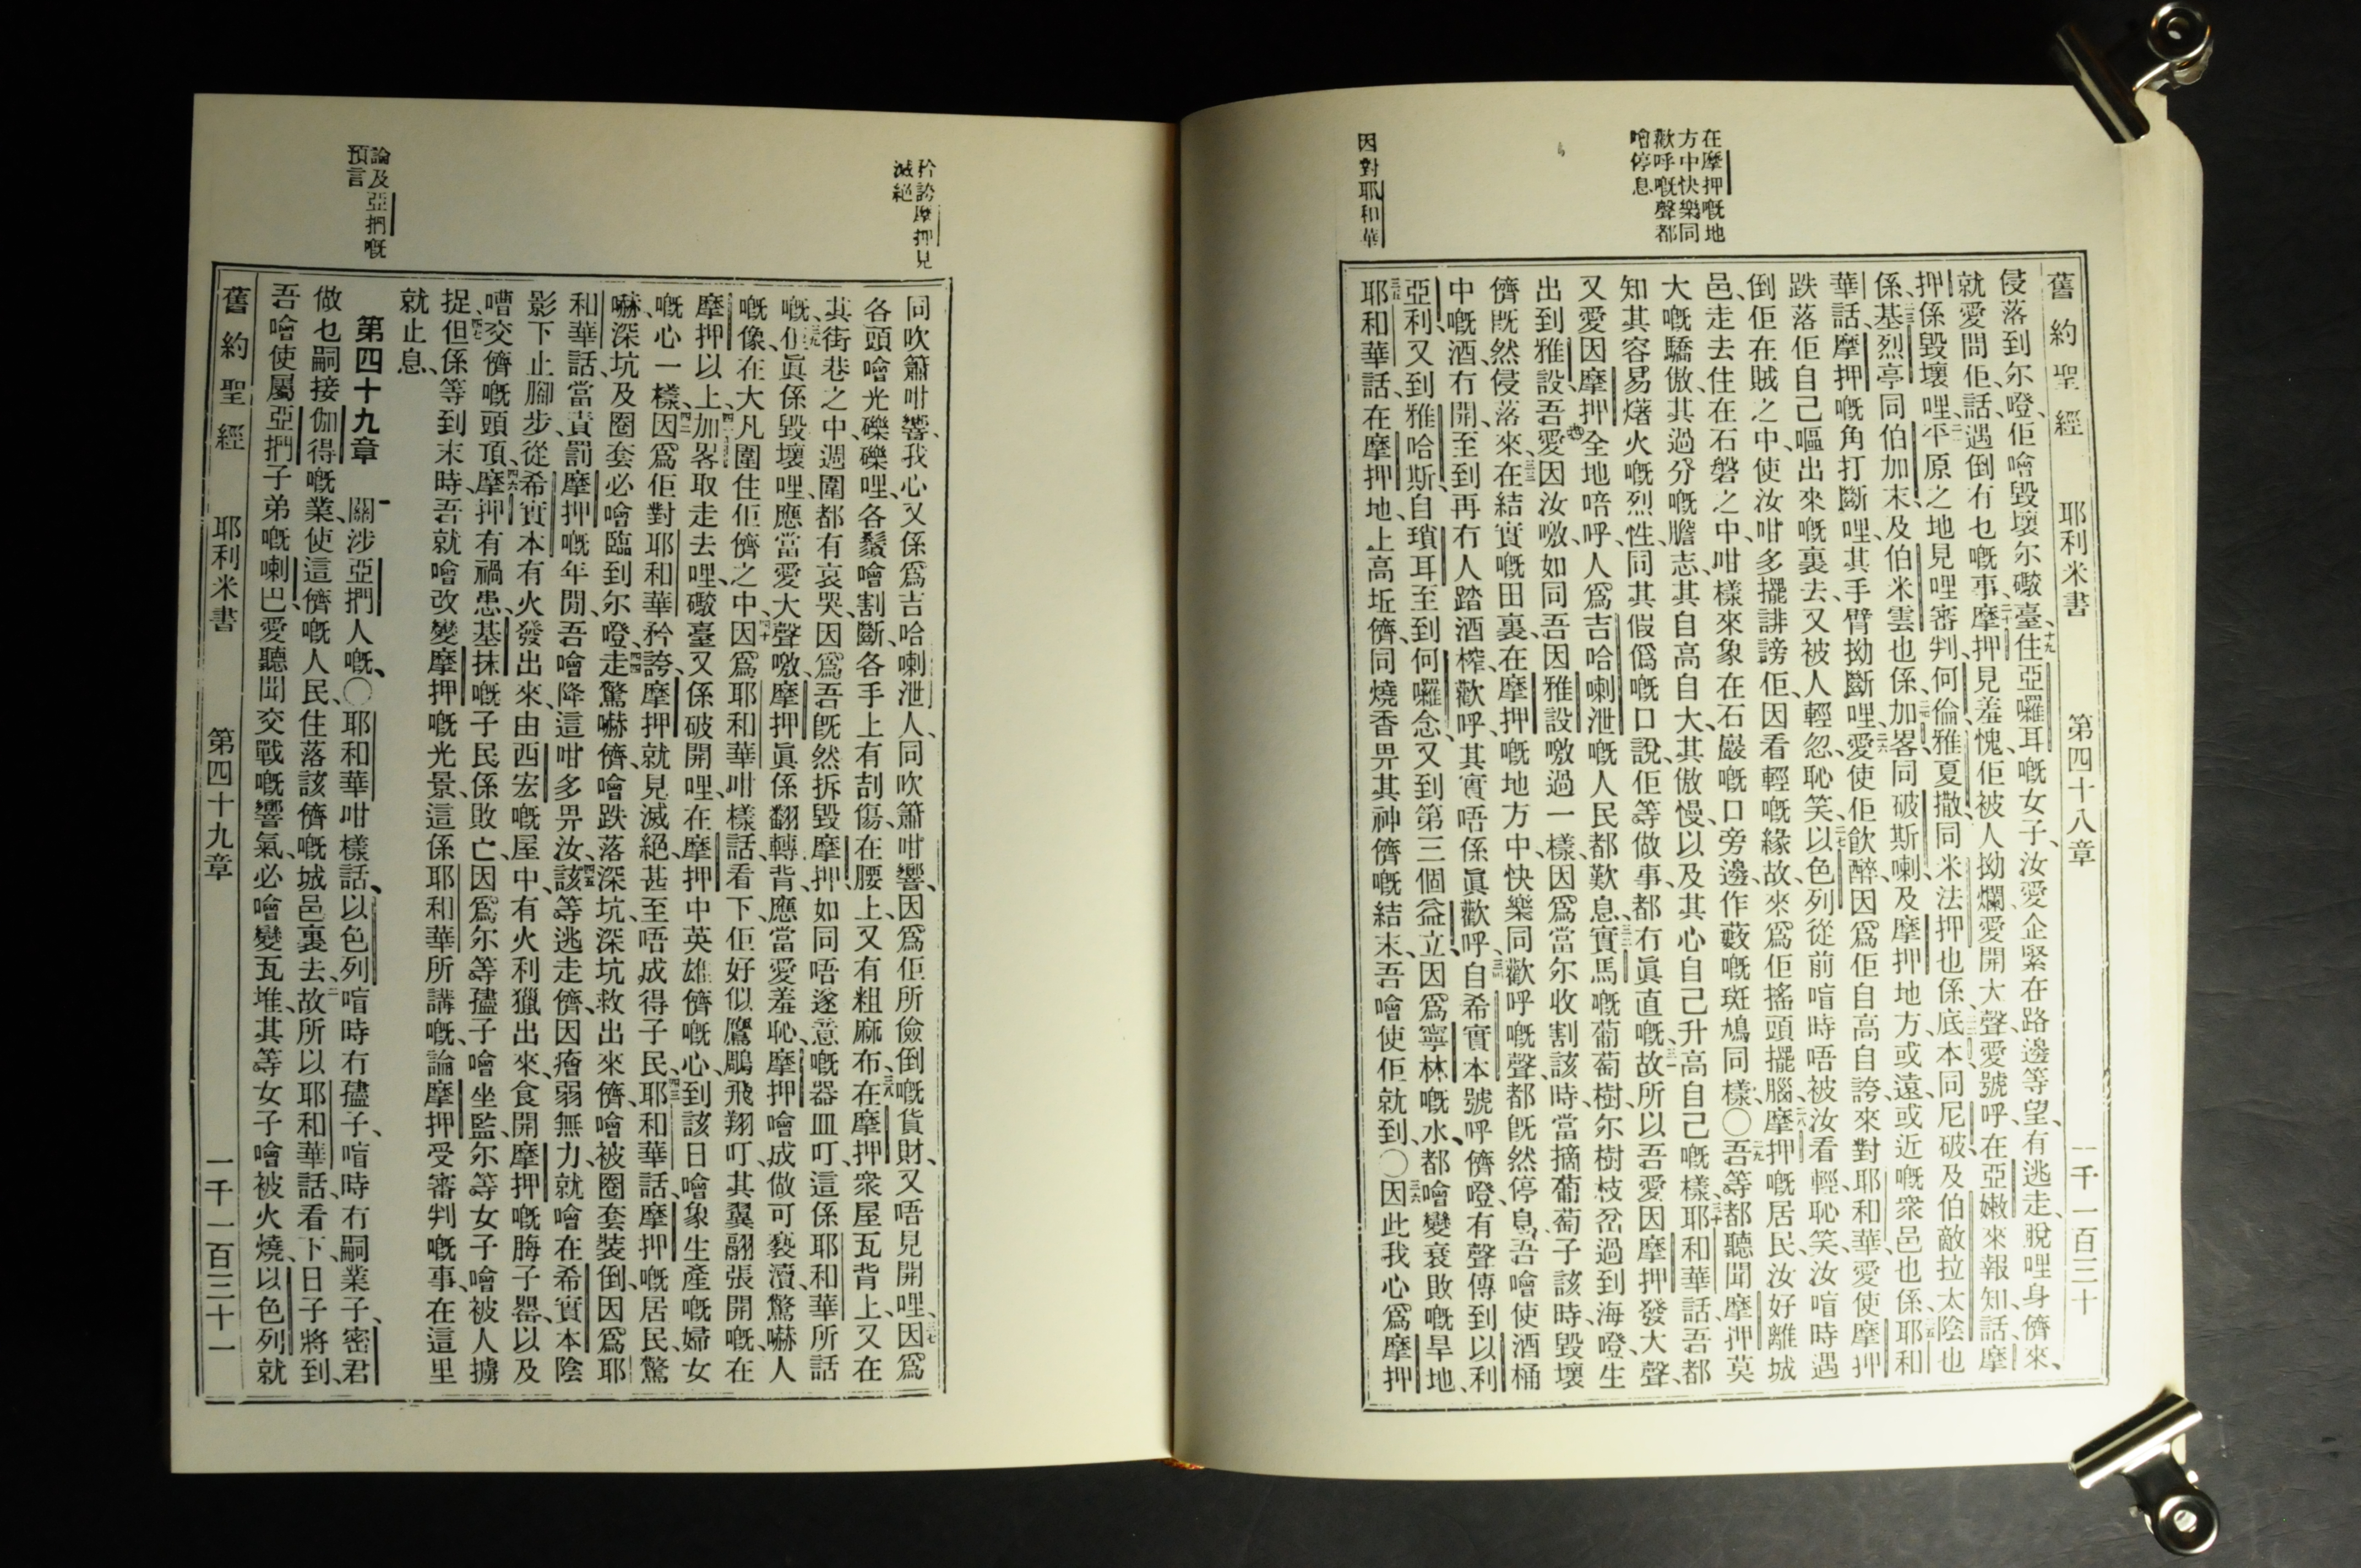 舊約聖經 耶利米書 第四十八章 一千一百三十
在摩押嘅地
方中快樂同
歡呼嘅聲都
噲停息
因對耶和華
侵落到尔噔、佢噲毀壞尔礮臺、十九住亞囉耳嘅女子、汝愛企緊在路邊等望、有逃走、脫哩身儕來、
就愛問佢、話、遇倒有乜嘅事、二十摩押見羞愧、佢被人拗爛、愛開大聲、愛號呼、在亞嫩來報知、話、摩
押係毀壞哩、平原之地見哩審判、何倫、雅夏撒、同米法押也係、底本、同尼破、及伯敵拉太陰也
係、基烈亭、同伯加末、及伯米雲也係、加畧、同破斯喇、及摩押地方、或遠、或近嘅衆邑也係、耶和
華話、摩押嘅角打斷哩、其手臂拗斷哩、愛使佢飲醉、因爲佢自高自誇、來對耶和華、愛使摩押
跌落佢自己嘔出來嘅裏去、又被人輕忽、恥笑、以色列從前喧時唔被汝看輕、恥笑、汝喧時遇
倒佢在賊之中、使汝咁多擺誹謗佢、因看輕嘅緣故、來爲佢搖頭擺腦、摩押嘅居民、汝好離城
邑、走去住在石磐之中、咁樣來象在石巖嘅口旁邊作藪嘅斑鳩同樣、〇吾等都聽聞摩押莫
大嘅驕傲、其過分嘅膽志、其自高自大、其傲慢、以及其心自己升高自己嘅樣、三十耶和華話、吾都
知其容易𤓓火嘅烈性、同其假僞嘅口說、佢等做事、都冇眞直嘅、故所以吾愛因摩押發大聲、
又愛因摩押全地喑呼、人爲吉哈喇泄嘅人民都歎息、實馬嘅葡萄樹、尔樹枝岔過到海噔、生
出到雅設、吾愛因汝噭、如同吾因雅設噭過一樣、因爲當尔收割該時、當摘葡萄子該時、毀壞
儕既然侵落來、在結實嘅田裏、在摩押嘅地方中、快樂同歡呼嘅聲、都既然停息、吾噲使酒桶
中嘅酒冇開、至到再冇人踏酒榨、歡呼、其實唔係眞歡呼、自希實本號呼儕噔、有聲傳到以利
亞利、又到雅哈斯、自瑣耳至到何囉念、又到第三個益立、因爲寧林嘅水、都噲變衰敗嘅旱地、
耶和華話、在摩押地上高坵儕、同燒香畀其神儕嘅結末、吾噲使佢就到、〇因此我心爲摩押
矜誇摩押見
滅絕
論及亞捫嘅
預言
同吹簫咁響、我心又係爲吉哈喇泄人、同吹簫咁響、因爲佢所儉倒嘅貨財、又唔見開哩、因爲
各頭噲光礫礫哩、各鬚噲割斷、各手上有刮傷、在腰上、又有粗麻布、在摩押衆屋瓦背上、又在
其街巷之中、週圍都有哀哭、因爲吾既然拆毀摩押、如同唔遂意嘅器皿叮、這係耶和華所話
嘅、佢眞係毀壞哩、應當愛大聲噭、摩押眞係翻轉背、應當愛羞恥、摩押噲成做可褻瀆、驚嚇人
嘅像、在大凡圍住佢儕之中、四十因爲耶和華咁樣話、看下、佢好似鷹鵰飛翔叮、其翼翮張開嘅、在
摩押以上、加畧取走去哩、礮臺又係破開哩、在摩押中英雄儕嘅心、到該日噲象生產嘅婦女
嘅心一樣、因爲佢對耶和華矜誇、摩押就見滅絕、甚至唔成得子民、耶和華話、摩押嘅居民、驚
嚇、深坑、及圈套、必噲臨到尔噔、走驚嚇儕、噲跌落深坑、深坑救出來儕、噲被圈套裝倒、因爲耶
和華話、當責罰摩押嘅年間、吾噲降這咁多畀汝、該等逃走儕、因癐弱無力、就噲在希實本陰
影下止腳步、從希實本有火發出來、由西宏嘅屋中、有火利獵出來、食開摩押嘅脢子罌、以及
嘈交儕嘅頭頂、摩押有禍患、基抹嘅子民係敗亡、因爲尔等孻子噲坐監、尔等女子噲被人擄
捉、但係等到末時、吾就噲改變摩押嘅光景、這係耶和華所講嘅、論摩押受審判嘅事、在這里
就止息、
第四十九章 關涉亞捫人嘅、〇耶和華咁樣話、以色列喧時冇孻子、喧時冇嗣業子、密君
做乜嗣接伽得嘅業、使這儕嘅人民、住落該儕嘅城邑裏去、故所以耶和華話、看下、日子將到、
吾噲使屬亞捫子弟嘅喇巴、愛聽聞交戰嘅響氣、必噲變瓦堆、其等女子噲被火燒、以色列就
舊約聖經 耶利米書 第四十九章 一千一百三十一